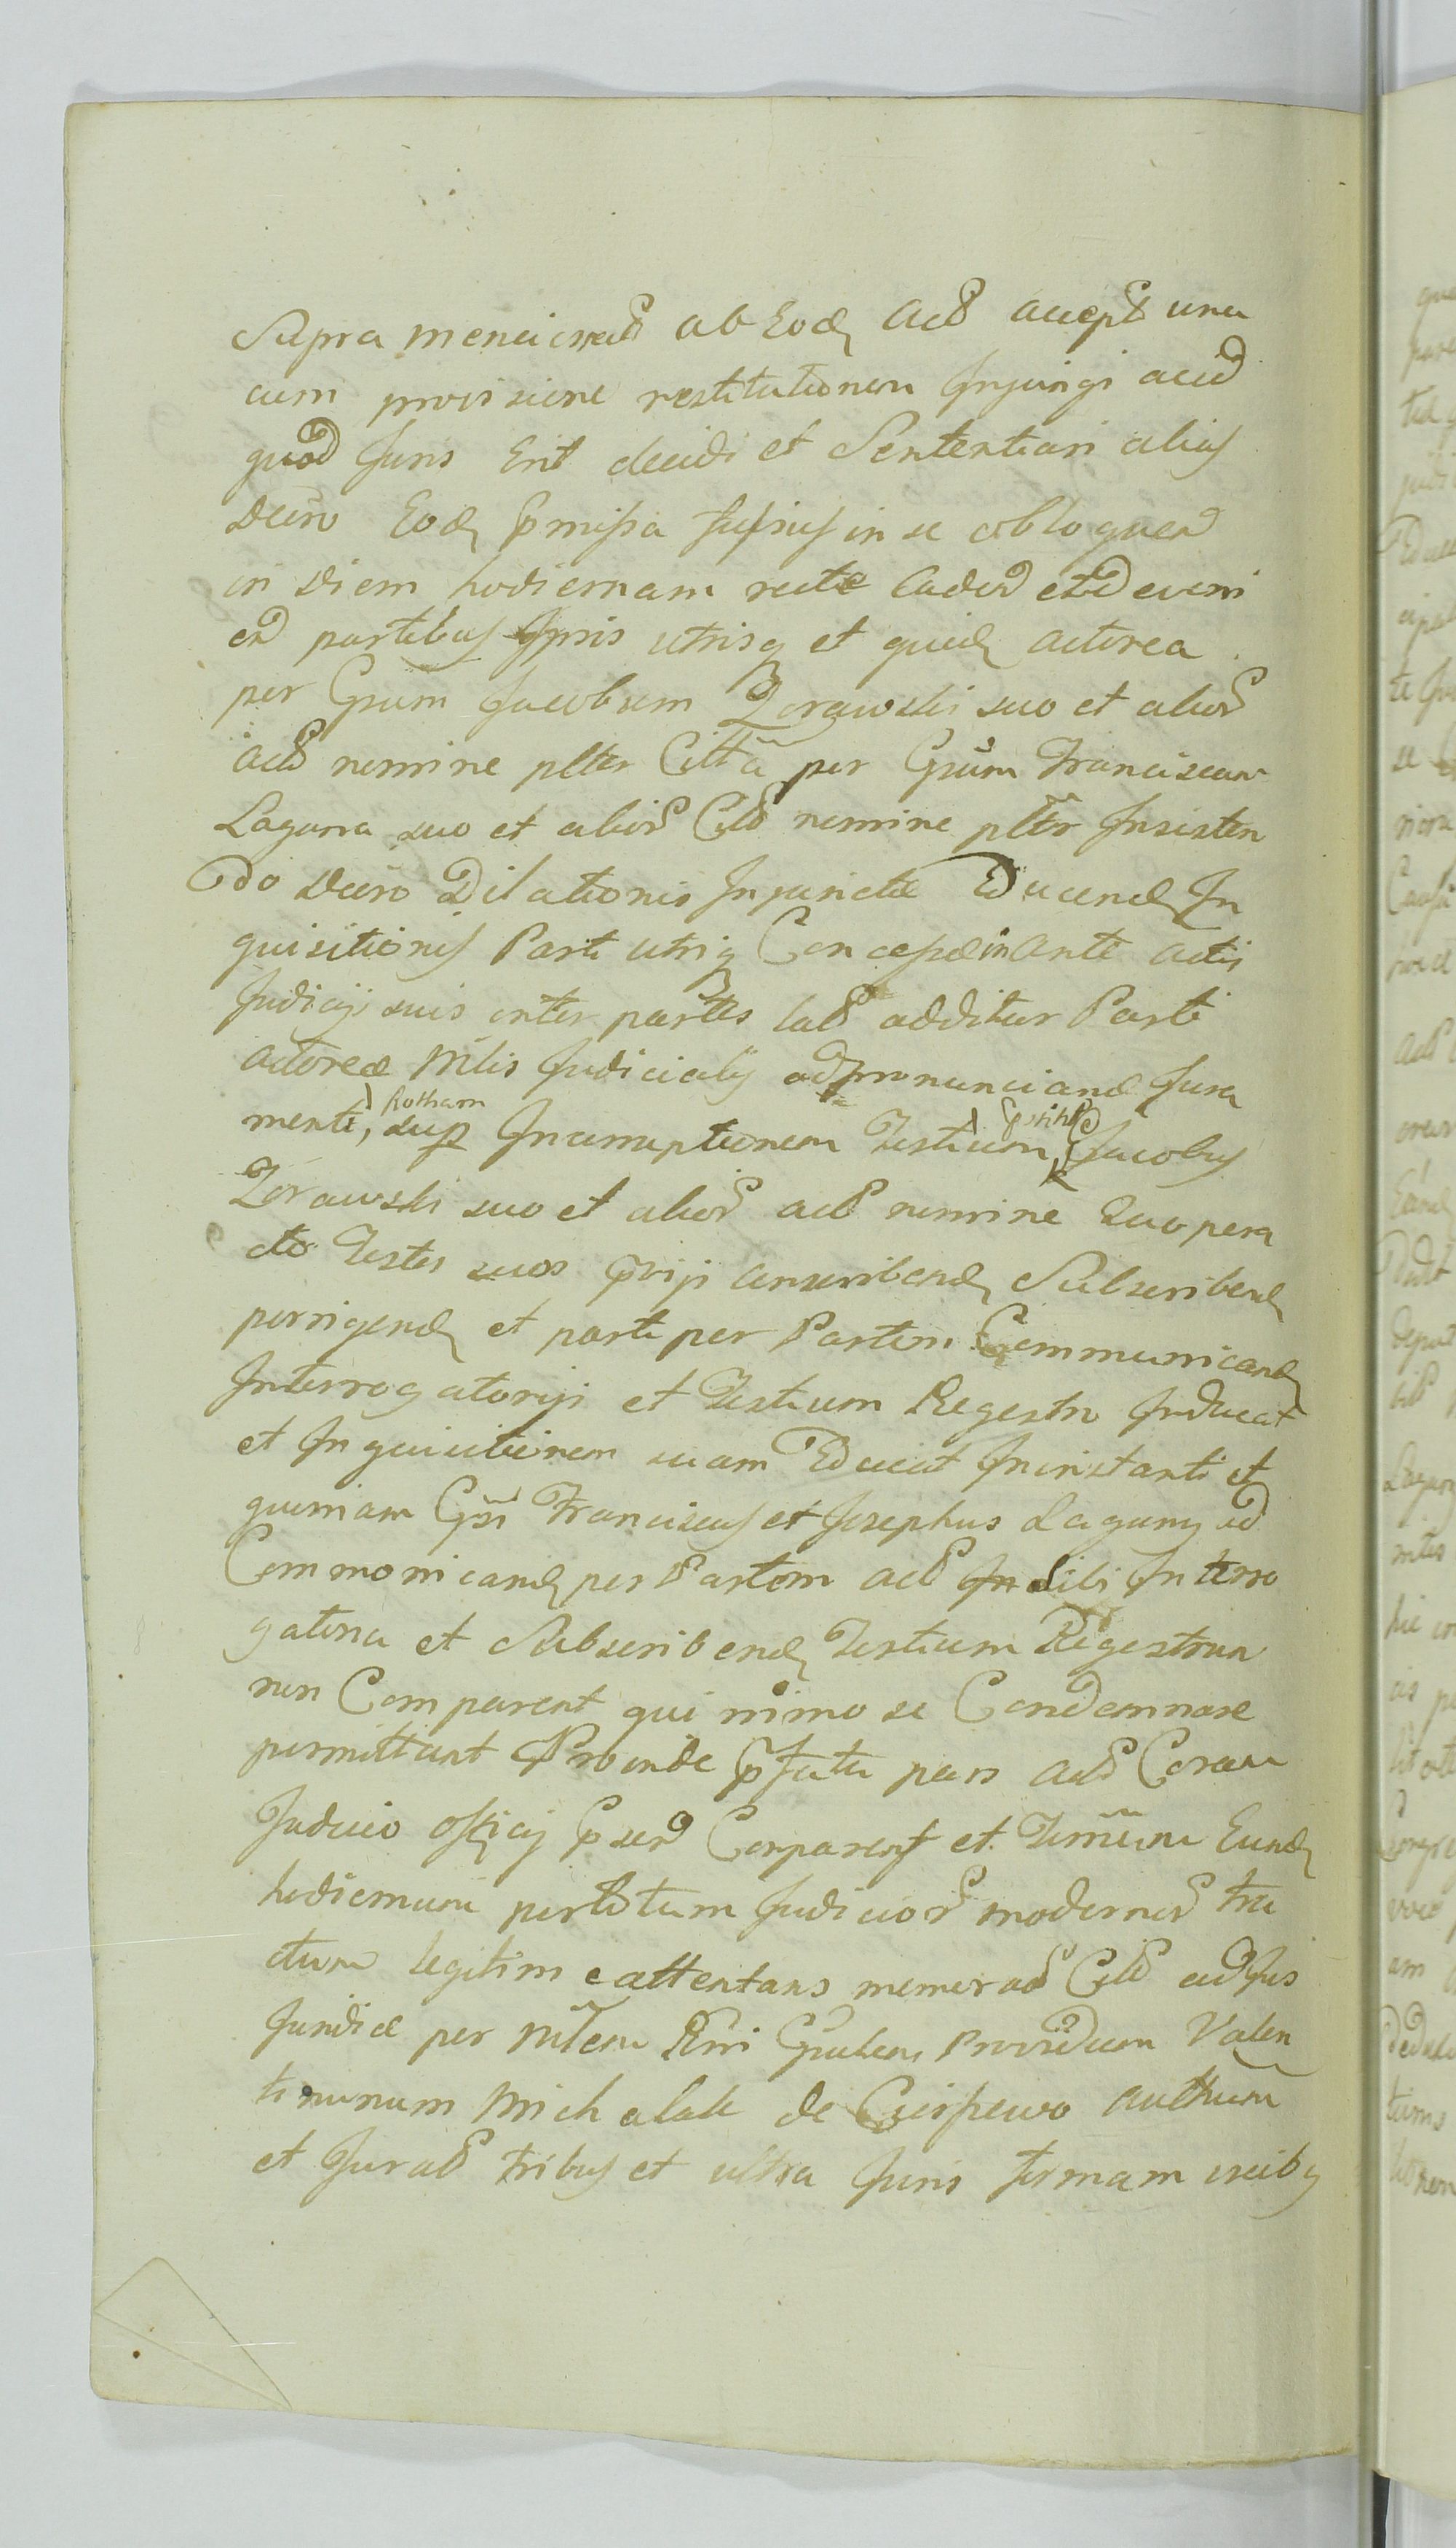 Supra mencionat ab Eod Act accept una
cum provisione restitutionem Injungi acid
quod Juris Erit decidi et Sententiari alias
Decro Eod pmissa fusius in se obloquen
in Diem hodiernam recte Caden et deveni
en partibus Ipsis utrisq et quid actorea
per Gsum Jacobum Zorawski suo et alior
act nomine plter Citta per Gsum Franciscum
Laguna suo et alior Cit nomine plter Insisten
do Decro Dilationis Injunctæ Educend In
quisitionis Parti utriq Concessæ in Ante actis
Judicijs suis inter partes lat additur Parti
actoreæ Mtis Judicialis ad pronunciand Jura
menti, Rotham sup Incorruptionem Testium, Jacobus
Zorawski suo et alior act nomine Quo pera
cto Testes suos conscribend Subscribend
porrigend et parti per Partem Communicand
Interrogatorijs et Testium Regestro Inducat
et Inquisitionem suam Educat In instanti et
quoniam Gsi Franciscus et Josephus Laguny ad
Communicand per Partem act sibi Interro
gatoria et Subscribend Testium Regestrum
non Comparent qui nimo se Condemnare
permittunt Proinde pfata pars act Coram
Judicio officij psen Comparens et Terminum Eund
hodiernum per totum Judicior modernor tra
ctum legitime attentans memorat Cit ad Jus
Juridice per Mtem Rni Gnlem Providum Valen
tinunum Michalak de Cierpewo authum
et Jurat tribus et ultra Juris formam vicibq